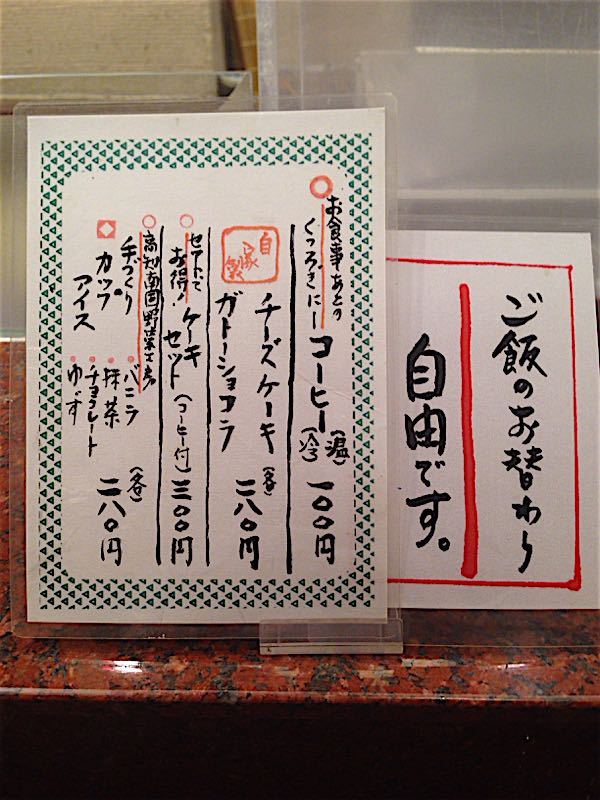 お食事あとの
くつろぎにー
コーヒー(温)(冷)一〇〇円
自家製
チーズケーキ
ガトーショコラ
(各)二八〇円
セットで
お得!
ケーキ
セット(コーヒー付)三〇〇円
高知南国野菜工房
手づくり
カップ
アイス
バニラ
抹茶
チョコレート
ゆず
(各)二八〇円
ご飯のお替わり
自由です。